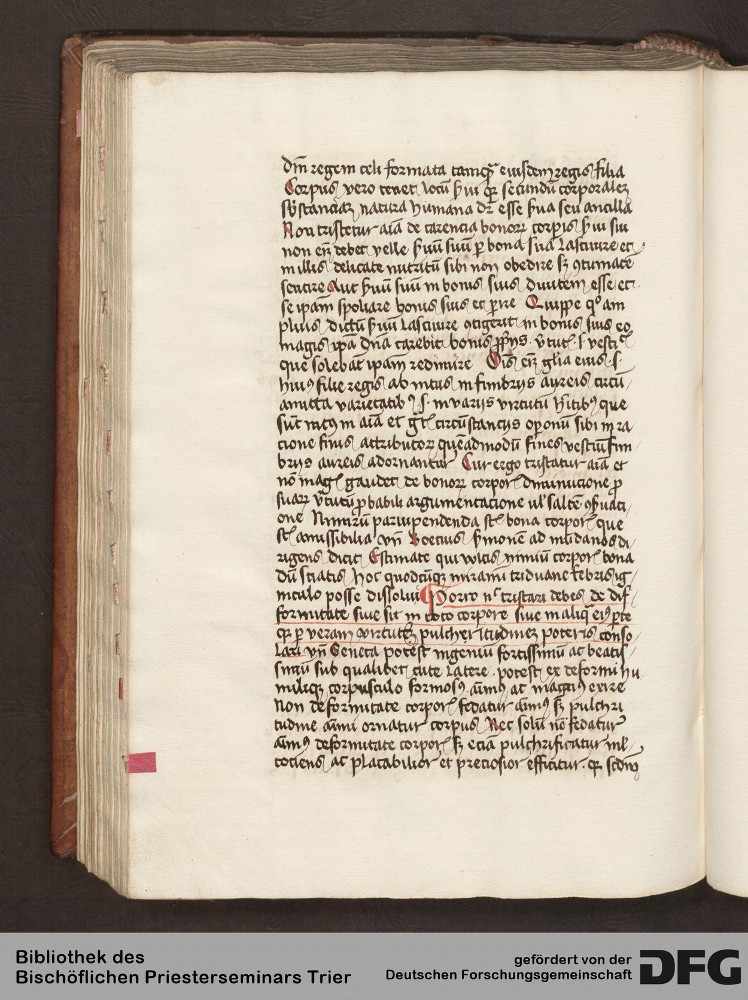 dm̄ regem celi formata tamqȝ eiusdem regis filia
Corpus vero tenet locū s̄ui qȝ secundū corporalem
sb̄stanciaȝ natura humana dr̄ esse s̄ua seu ancilla
Non tristetur aīa de carencia bonoꝝ corpis s̄ui sui
non em̄ debet velle s̄uū suū ꝑ bona sua lasciuire et
in illis delicate nutritū sibi non obedire sȝ ꝯtumacē
sentire Aut s̄uū suū in bonis suis diuitem esse et
se ip̄am spoliare bonis suis et ꝑire Quippe
plius dictū s̄uū lasciuire ꝯtigerit in bonis suis eo
magis ip̄a dn̄a carebit bonis vtut s vesti
que solebāt ip̄am redimire Oīs em̄ gl̄ia eius s
huiꝰ filie regis ab intus in fimbrijs aureis circū
amicta varietatibꝰ s in varijs virtutū hītibꝰ que
sūt intꝰ in aīa et circūstancijs oponū sibi in ra
cione finis attributoꝝ quēadmodū fines vestiū fim
brijs aureis adornantur Cur ergo tristatur aīa et
nō mag gaudet de bonoꝝ corpor diminucione ꝓ
suaꝝ v̄tutū ꝓbabili argumentacione ul saltē ꝯs̄uaci
one Nimirū paruipendenda st bona corpor que
st amissibilia vn̄ Boecius s̄monē ad mūdanos di
rigens dicit Estimate qui vultis nimiū corpor bona
dū sciatis hoc quodcūqȝ mirami triduane febris ig
niculo posse dissolui Porro nō tristari debes de dif
formitate siue sit in toto corpore siue in aliqua eiꝰ ꝑte
qȝ ꝑ veram virtutem pulchritudinem poteris conso
lari vn̄ Seneca potest ingeniū fortissimū ac beatis
simū sub qualibet cute latere potest ex deformi hu
milieqȝ corpusculo formosꝰ aīmꝰ ac magnꝰ exire
Non deformitate corpor fedatur aīmꝰ sȝ pulchri
tudine aīmi ornatur corpus Nec solū nō fedatur
aīmꝰ deformitate corpor sȝ eciā pulchrificatur ml
tociens ac placabilior et preciosior efficitur qȝ scdm
Bibliothek des
Bischöflichen Priesterseminars Trier
gefördert von der
Deutschen Forschungsgemeinschaft
DFG